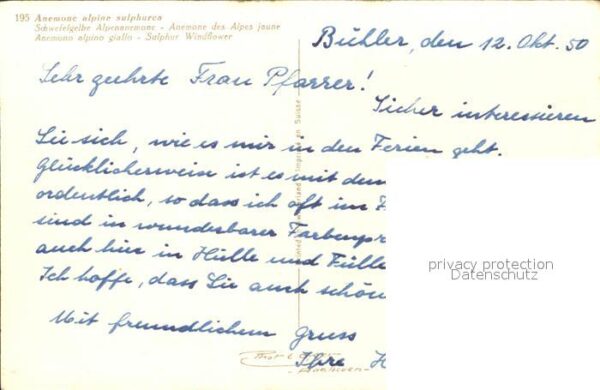 195 Anemone alpina sulphurea
Schwefelgelbe Alpenanemone - Anemone des Alpes jaune
Anemono alpino giallo - Sulphur Windflower
Bühler, den 12. Okt. 50
Sehr geehrte Frau Pfarrer!
Sicher interessieren
Sie sich, wie es mir in den Ferien geht.
Glücklicherweise ist es mit dem
ordentlich, so dass ich oft im
sind in wunderbarer Farbenpr
auch hier in Hülle und Fülle
Ich hoffe, dass Sie auch schön
Mit freundlichem Gruss
Ihre H
privacy protection
Datenschutz